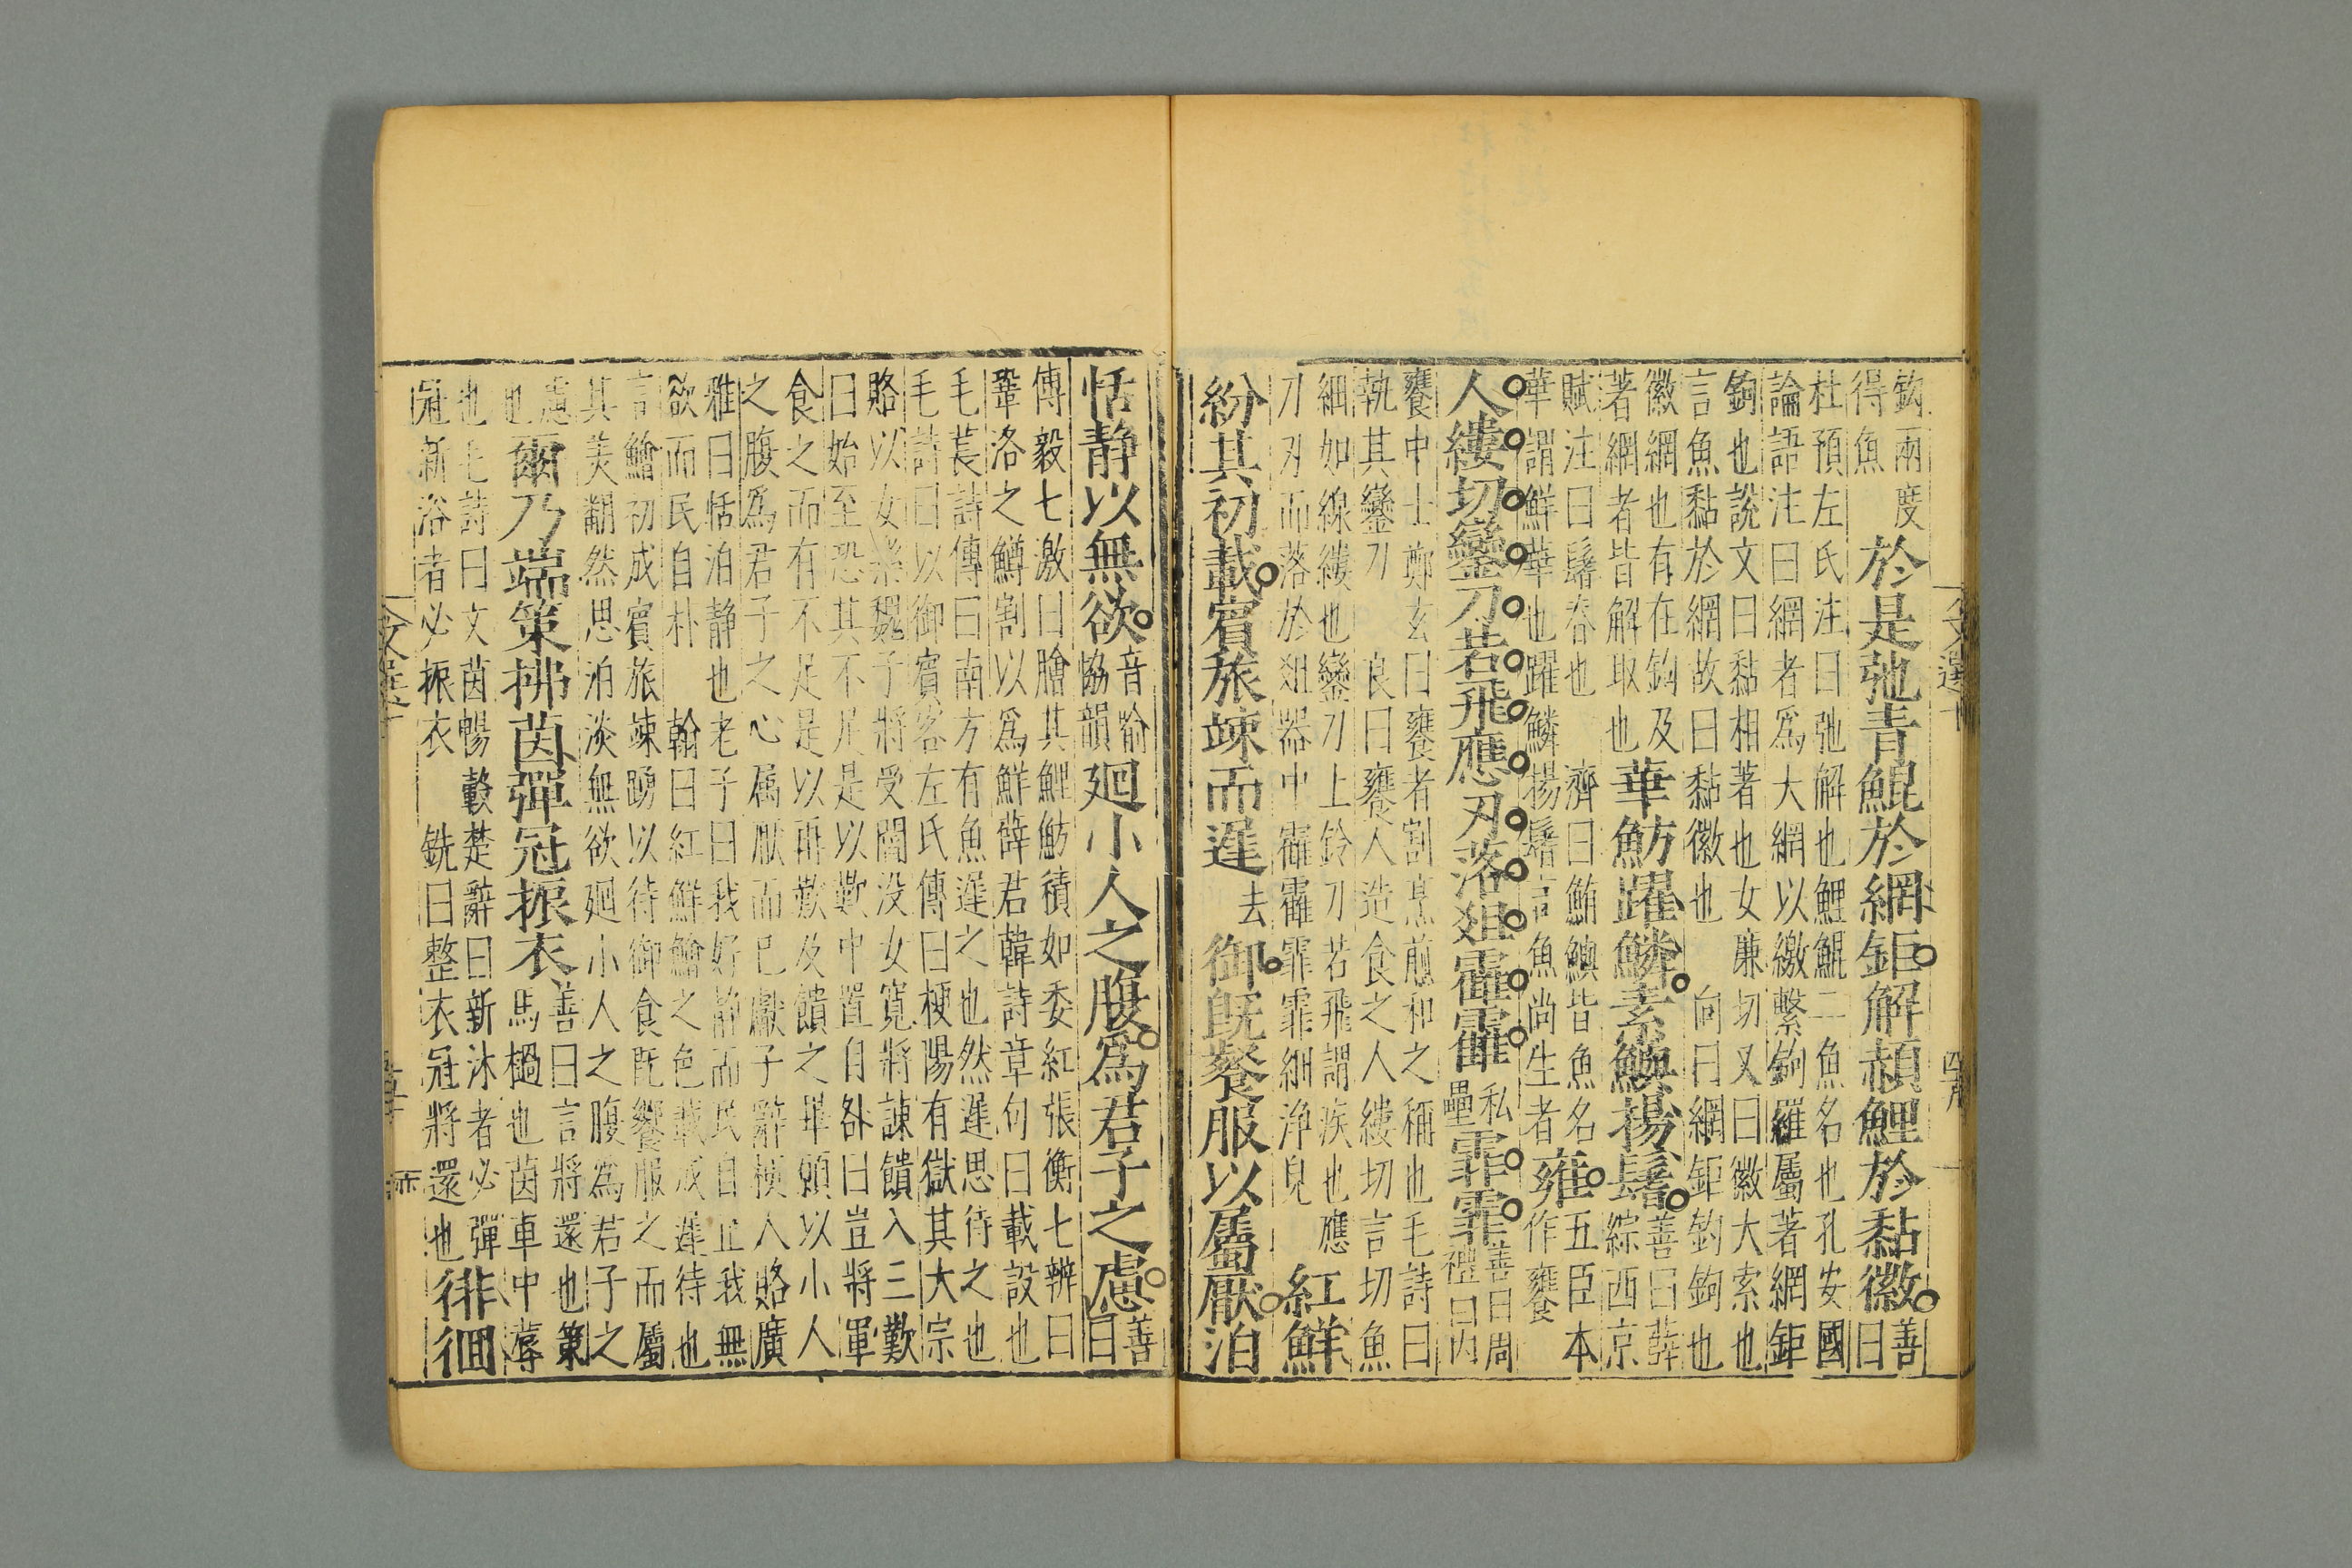 鈎兩度
得魚
於是弛青鯤於網鉅解赬鯉於黏徽
善
曰
杜預左氏注曰弛解也鯉鯤二魚名也孔安國
論語注曰網者爲大網以繳繫鉤羅屬著網鉅
鉤也說文曰黏相著也女廉切又曰徽大索也
言魚黏於網故曰黏徽也 向曰網鉅鈎鉤也
徽網也有在鈎及
著網者皆解取也
華魴躍鱗素鱮揚鬐
善曰薛
綜西京
賦注曰鬐脊也 濟曰鮪鱮皆魚名
華謂鮮華也躍鱗揚鬐言魚尚生者
雍
五臣本
作饔
人縷切鑾刀若飛應刃落俎靃靃
私
壘
霏霏
善曰周
禮曰内
饔中士鄭玄曰饔者割烹煎和之稱也毛詩曰
執其鑾刀 良曰饔人造食之人縷切言切魚
細如線縷也鑾刀上鈴刀若飛謂疾也應
刀刃而落於俎器中靃靃霏霏細浄皃
紅鮮
紛其初載賓旅竦而遲
去
御旣餐服以屬厭泊
恬静以無欲
音喻
協韻
廻小人之腹爲君子之慮
善
曰
傅毅七激曰膾其鯉魴積如委紅張衡七辨曰
鞏洛之鱒割以爲鮮薛君韓詩章句曰載設也
毛萇詩傳曰南方有魚遲之也然遲思待之也
毛詩曰以御賓客左氏傳曰梗陽有獄其大宗
賂以女樂魏子將受閻没女寬將諫饋入三歎
曰始至恐其不足是以歎中置自咎曰豈將軍
食之而有不足是以再歎及饋之畢願以小人
之腹爲君子之心属厭而已獻子辭梗人賂廣
雅曰恬泊静也老子曰我好静而民自正我無
欲而民自朴 翰曰紅鮮鱠之色載成遲待也
言鱠初成賓旅竦踴以待御食旣饗服之而屬
其美翻然思泊淡無欲廻小人之腹爲君子之
慮
也
爾乃端策拂茵彈冠振衣
善曰言將還也策
馬檛也茵車中蓐
也毛詩曰文茵暢轂楚辭曰新沐者必彈
冠新浴者必振衣 銑曰整衣冠將還也
徘徊